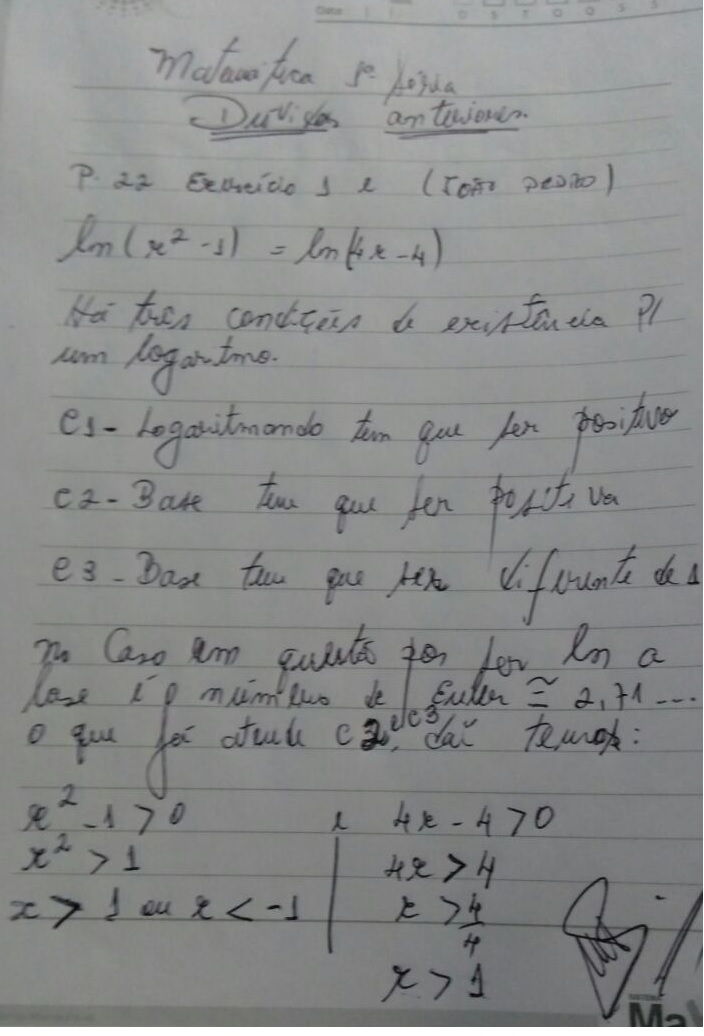 Data:
D S T Q Q S S
Matemática 1ª Série
Dúvidas anteriores
P. 22 Exercício 1 e (João Pedro)
ln(x² - 1) = ln(4x - 4)
Há tres condições de existência P/
um logaritmo.
C1 - Logaritmando tem que ser positivo
C2 - Base tem que ser positiva
C3 - Base tem que ser diferente de 1
No caso em questão por ser ln a
base é o número de Euler ≅ 2,71...
o que já atende C2 e C3, daí temos:
x² - 1 > 0 e 4x - 4 > 0
x² > 1 4x > 4
x > 1 ou x < -1 x > 4/4
x > 1